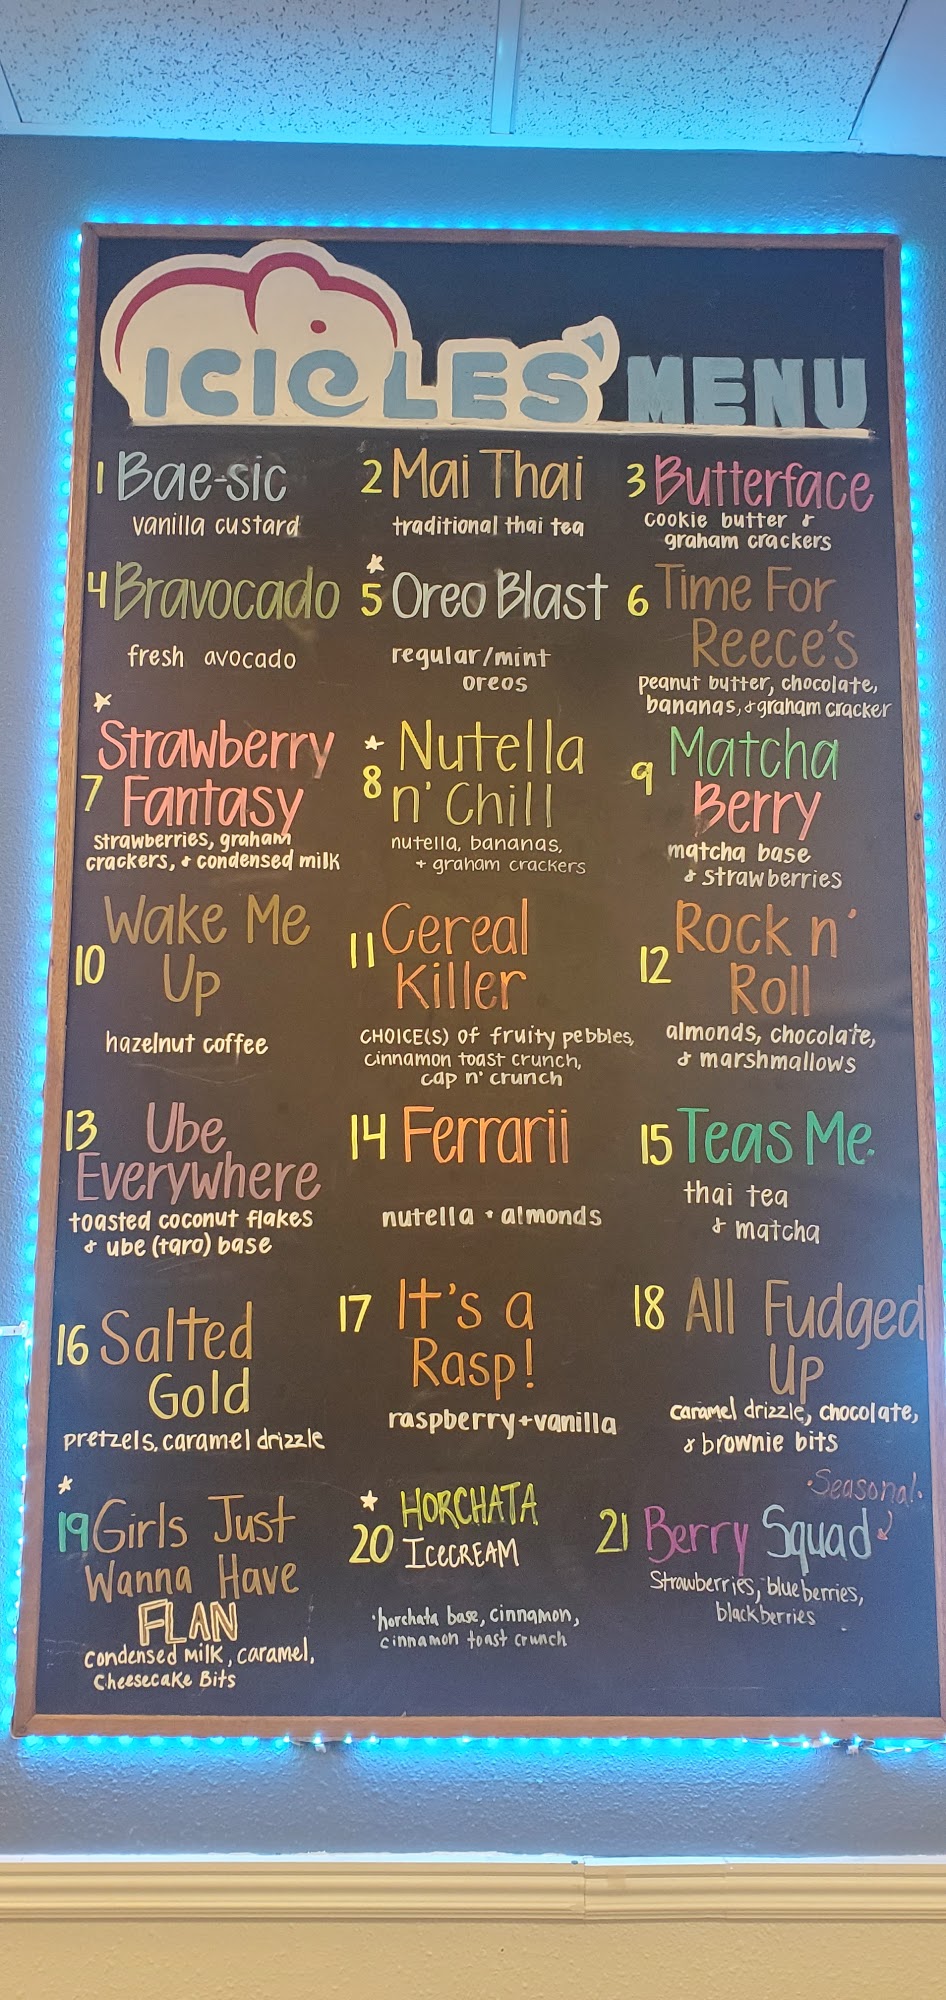 ICICLES' MENU
1 Bae-sic
vanilla custard
2 Mai Thai
traditional thai tea
3 Butterface
cookie butter &
graham crackers
4 Bravocado
fresh avocado
5 Oreo Blast
regular/mint
oreos
6 Time For
Reece's
peanut butter, chocolate,
bananas, & graham cracker
Strawberry
7 Fantasy
strawberries, graham
crackers, & condensed milk
Nutella
8 n' Chill
nutella, bananas,
+ graham crackers
9 Matcha
Berry
matcha base
& strawberries
10 Wake Me
Up
hazelnut coffee
11 Cereal
Killer
CHOICE(S) of fruity pebbles,
cinnamon toast crunch,
cap n' crunch
12 Rock n'
Roll
almonds, chocolate,
& marshmallows
13 Ube
Everywhere
toasted coconut flakes
& ube (taro) base
14 Ferrarii
nutella + almonds
15 Teas Me
thai tea
& matcha
16 Salted
Gold
pretzels, caramel drizzle
17 It's a
Rasp!
raspberry + vanilla
18 All Fudged
Up
caramel drizzle, chocolate,
& brownie bits
19 Girls Just
Wanna Have
FLAN
condensed milk, caramel,
Cheesecake Bits
20 HORCHATA
ICECREAM
·horchata base, cinnamon,
cinnamon toast crunch
·Seasonal·
21 Berry Squad
Strawberries, blueberries,
blackberries